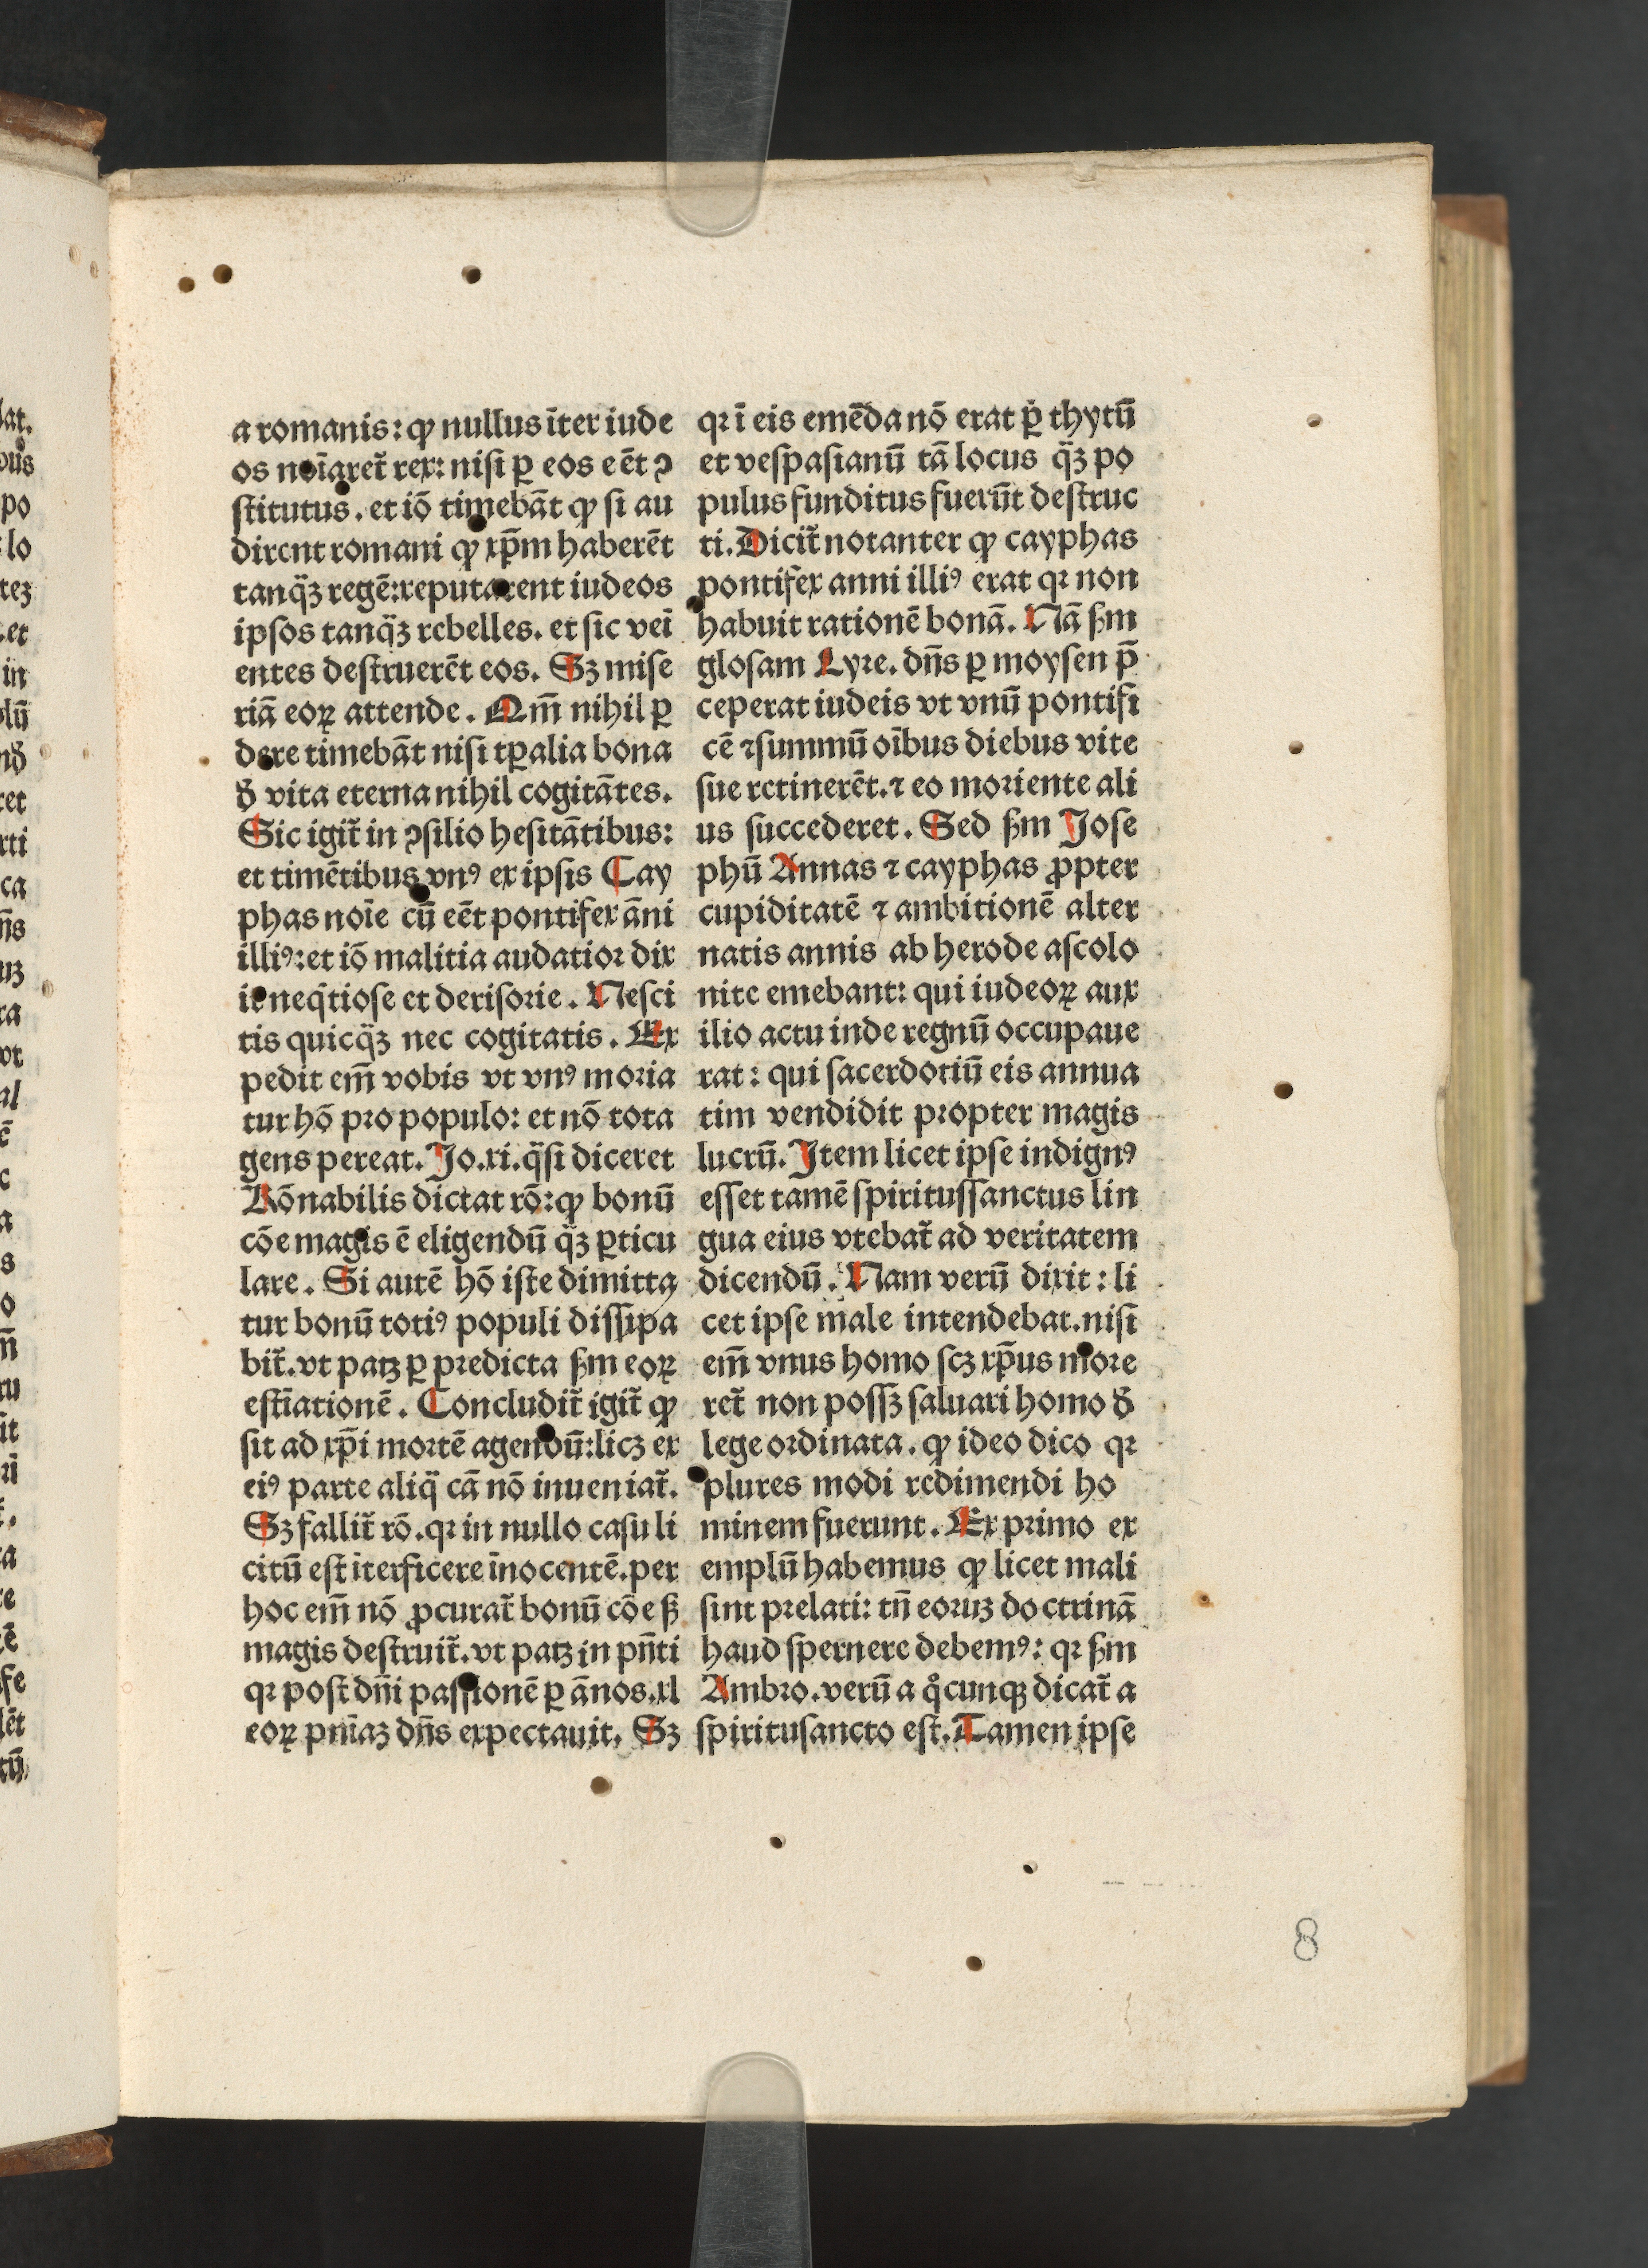 a romanis: ꝙ nullus īter iude
os noīaret̄ rex: nisi ꝑ eos eēt ꝯ
stitutus. et iō timebāt ꝙ si au
dirent romani ꝙ xp̄m haberēt
tanq̄ꝫ regē: reputarent iudeos
ipsos tanq̄ꝫ rebelles. et sic veī
entes destruerēt eos. Sꝫ mise
riā eoꝝ attende. Qm̄ nihil ꝑ
dere timebāt nisi tꝑalia bona
ð vita eterna nihil cogitātes.
Sic igit̄ in ꝯsilio hesitātibus:
et timētibus vnꝰ ex ipsis Cay
phas noīe cū eēt pontifex āni
illiꝰ: et iō malitia audatior dix
it neq̄tiose et derisorie. Nesci
tis quicq̄ꝫ nec cogitatis. Ex
pedit em̄ vobis vt vnꝰ moria
tur hō pro populo: et nō tota
gens pereat. Jo. xi. q̄si diceret
Rōnabilis dictat rō: ꝙ bonū
cōe magis ē eligendū q̄ꝫ ꝑticu
lare. Si autē hō iste dimitta
tur bonū totiꝰ populi dissipa
bit̄. vt patꝫ ꝑ predicta ẜm eoꝝ
estīationē. Concludit̄ igit̄ ꝙ
sit ad xp̄i mortē agendū: licꝫ ex
eiꝰ parte aliq̄ cā nō inueniat̄.
Sꝫ fallit̄ rō. qꝛ in nullo casu li
citū est īterficere īnocentē. per
hoc em̄ nō ꝓcurat̄ bonū cōe ẜ
magis destruit̄. vt patꝫ in pn̄ti
qꝛ post dn̄i passionē ꝑ ānos. xl
eoꝝ pn̄iaꝫ dn̄s expectauit. Sꝫ
qꝛ ī eis emēda nō erat ꝑ thytū
et vespasianū tā locus q̄ꝫ po
pulus funditus fuerūt destruc
ti. Dicit̄ notanter ꝙ cayphas
pontifex anni illiꝰ erat qꝛ non
habuit rationē bonā. Nā ẜm
glosam Lyre. dn̄s ꝑ moysen p̄
ceperat iudeis vt vnū pontifi
cē ⁊ summū oībus diebus vite
sue retinerēt. ⁊ eo moriente ali
us succederet. Sed ẜm Jose
phū Annas ⁊ cayphas ꝓpter
cupiditatē ⁊ ambitionē alter
natis annis ab herode ascolo
nite emebant: qui iudeoꝝ aux
ilio actu inde regnū occupaue
rat: qui sacerdotiū eis annua
tim vendidit propter magis
lucrū. Item licet ipse indignꝰ
esset tamē spiritussanctus lin
gua eius vtebat̄ ad veritatem
dicendū. Nam verū dixit: li
cet ipse male intendebat. nisi
em̄ vnus homo scꝫ xp̄us more
ret̄ non possꝫ saluari homo ð
lege ordinata. ꝙ ideo dico qꝛ
plures modi redimendi ho
minem fuerunt. Ex primo ex
emplū habemus ꝙ licet mali
sint prelati: tn̄ eoruꝫ doctrinā
haud spernere debemꝰ: qꝛ ẜm
Ambro. verū a qͦcunqꝫ dicat̄ a
spiritusancto est. Tamen ipse
8